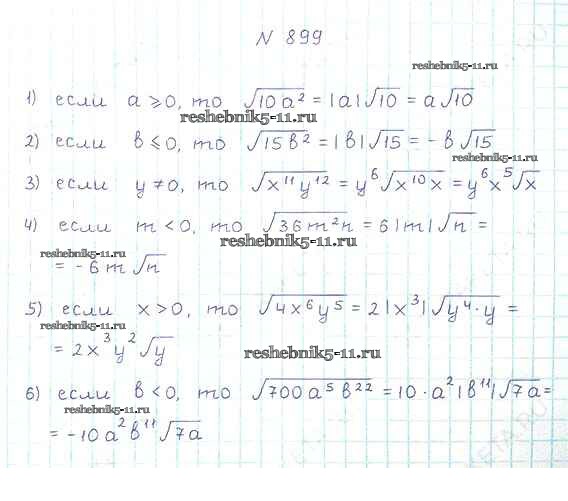 N 899
reshebnik5-11.ru
1) если a ≥ 0, то √10a² = |a|√10 = a√10
reshebnik5-11.ru
2) если в ≤ 0, то √15в² = |в|√15 = -в√15
reshebnik5-11.ru
3) если y ≠ 0, то √x¹¹y¹² = y⁶√x¹⁰x = y⁶x⁵√x
4) если m < 0, то √36m²n = 6|m|√n =
reshebnik5-11.ru
reshebnik5-11.ru
= -6m√n
5) если x > 0, то √4x⁶y⁵ = 2|x³|√y⁴·y =
reshebnik5-11.ru
= 2x³y²√y
reshebnik5-11.ru
6) если в < 0, то √700a⁵в²² = 10·a²|в¹¹|√7a =
reshebnik5-11.ru
= -10a²в¹¹√7a